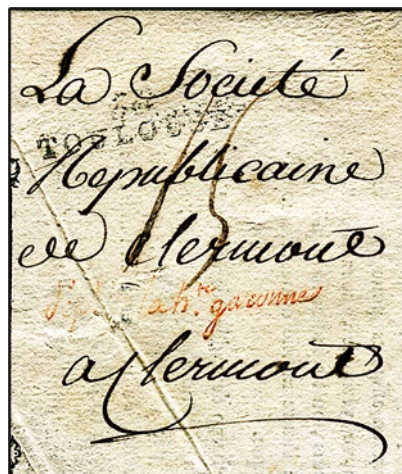 La Société
TOULOUSE
Republicaine
de Clermont
la h.te garonne
a Clermont